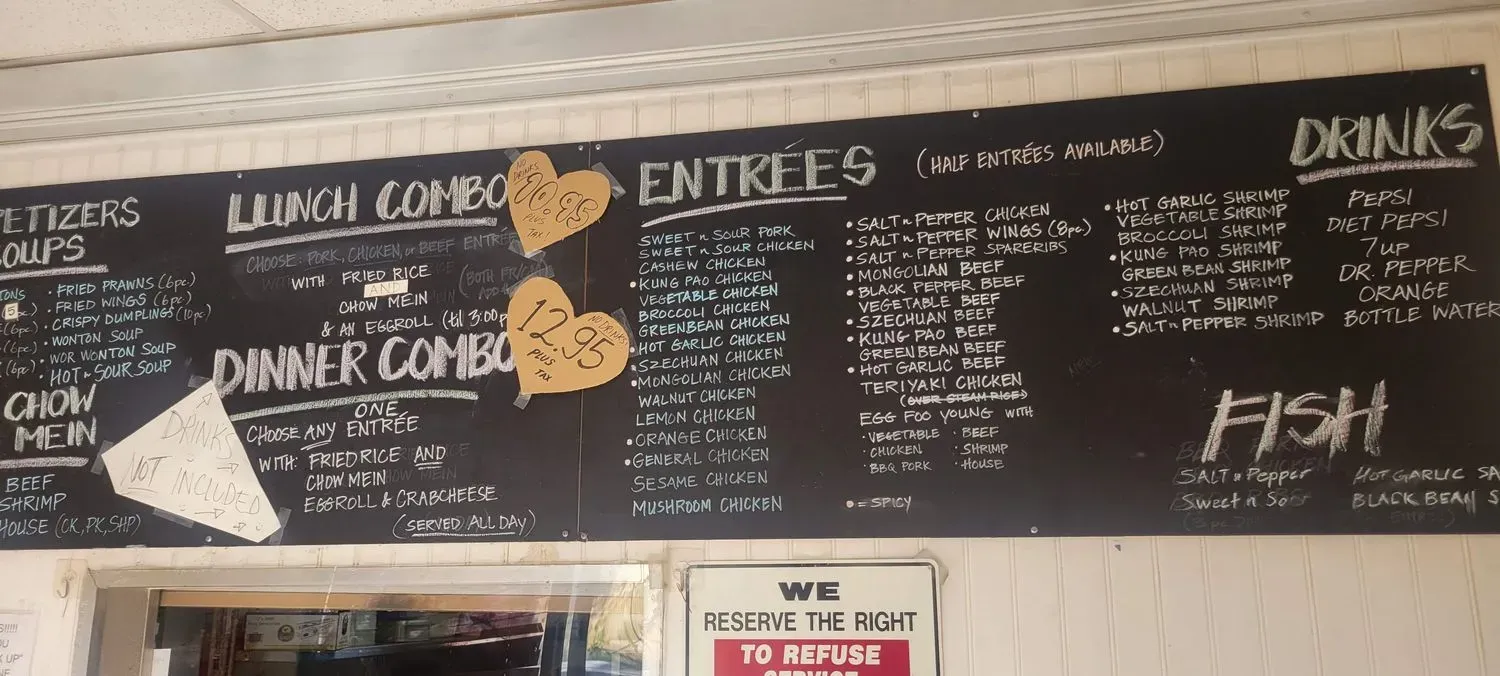 PETIZERS
OUPS
TONS
5
(6pc)
(6pc)
• FRIED PRAWNS (6pc)
• FRIED WINGS (6pc)
• CRISPY DUMPLINGS (10pc)
• WONTON SOUP
• WOR WONTON SOUP
• HOT n SOUR SOUP
CHOW
MEIN
BEEF
SHRIMP
HOUSE (CK, PK, SHP)
DRINKS
NOT INCLUDED
LUNCH COMBO
NO
DRINKS
PLUS
TAX!
CHOOSE: PORK, CHICKEN, or BEEF ENTRÉE
WITH FRIED RICE
AND
CHOW MEIN
& AN EGGROLL (til 3:00p
DINNER COMBO
12.95
NO DRINKS
PLUS
TAX
ONE
CHOOSE ANY ENTRÉE
WITH: FRIED RICE AND
CHOW MEIN
EGGROLL & CRABCHEESE
(SERVED ALL DAY)
ENTRÉES
(HALF ENTRÉES AVAILABLE)
SWEET n SOUR PORK
SWEET n SOUR CHICKEN
CASHEW CHICKEN
• KUNG PAO CHICKEN
VEGETABLE CHICKEN
BROCCOLI CHICKEN
GREENBEAN CHICKEN
• HOT GARLIC CHICKEN
SZECHUAN CHICKEN
• MONGOLIAN CHICKEN
WALNUT CHICKEN
LEMON CHICKEN
• ORANGE CHICKEN
• GENERAL CHICKEN
SESAME CHICKEN
MUSHROOM CHICKEN
• SALT n PEPPER CHICKEN
• SALT n PEPPER WINGS (8pc)
• SALT n PEPPER SPARERIBS
• MONGOLIAN BEEF
• BLACK PEPPER BEEF
VEGETABLE BEEF
• SZECHUAN BEEF
• KUNG PAO BEEF
GREEN BEAN BEEF
• HOT GARLIC BEEF
TERIYAKI CHICKEN
(OVER STEAM RICE)
EGG FOO YOUNG WITH
• VEGETABLE • BEEF
• CHICKEN • SHRIMP
• BBQ PORK • HOUSE
• = SPICY
• HOT GARLIC SHRIMP
VEGETABLE SHRIMP
BROCCOLI SHRIMP
• KUNG PAO SHRIMP
GREEN BEAN SHRIMP
• SZECHUAN SHRIMP
WALNUT SHRIMP
• SALT n PEPPER SHRIMP
DRINKS
PEPSI
DIET PEPSI
7 UP
DR. PEPPER
ORANGE
BOTTLE WATER
FISH
SALT n PEPPER
HOT GARLIC SA
Sweet n So
BLACK BEAN S
WE
RESERVE THE RIGHT
TO REFUSE
SERVICE